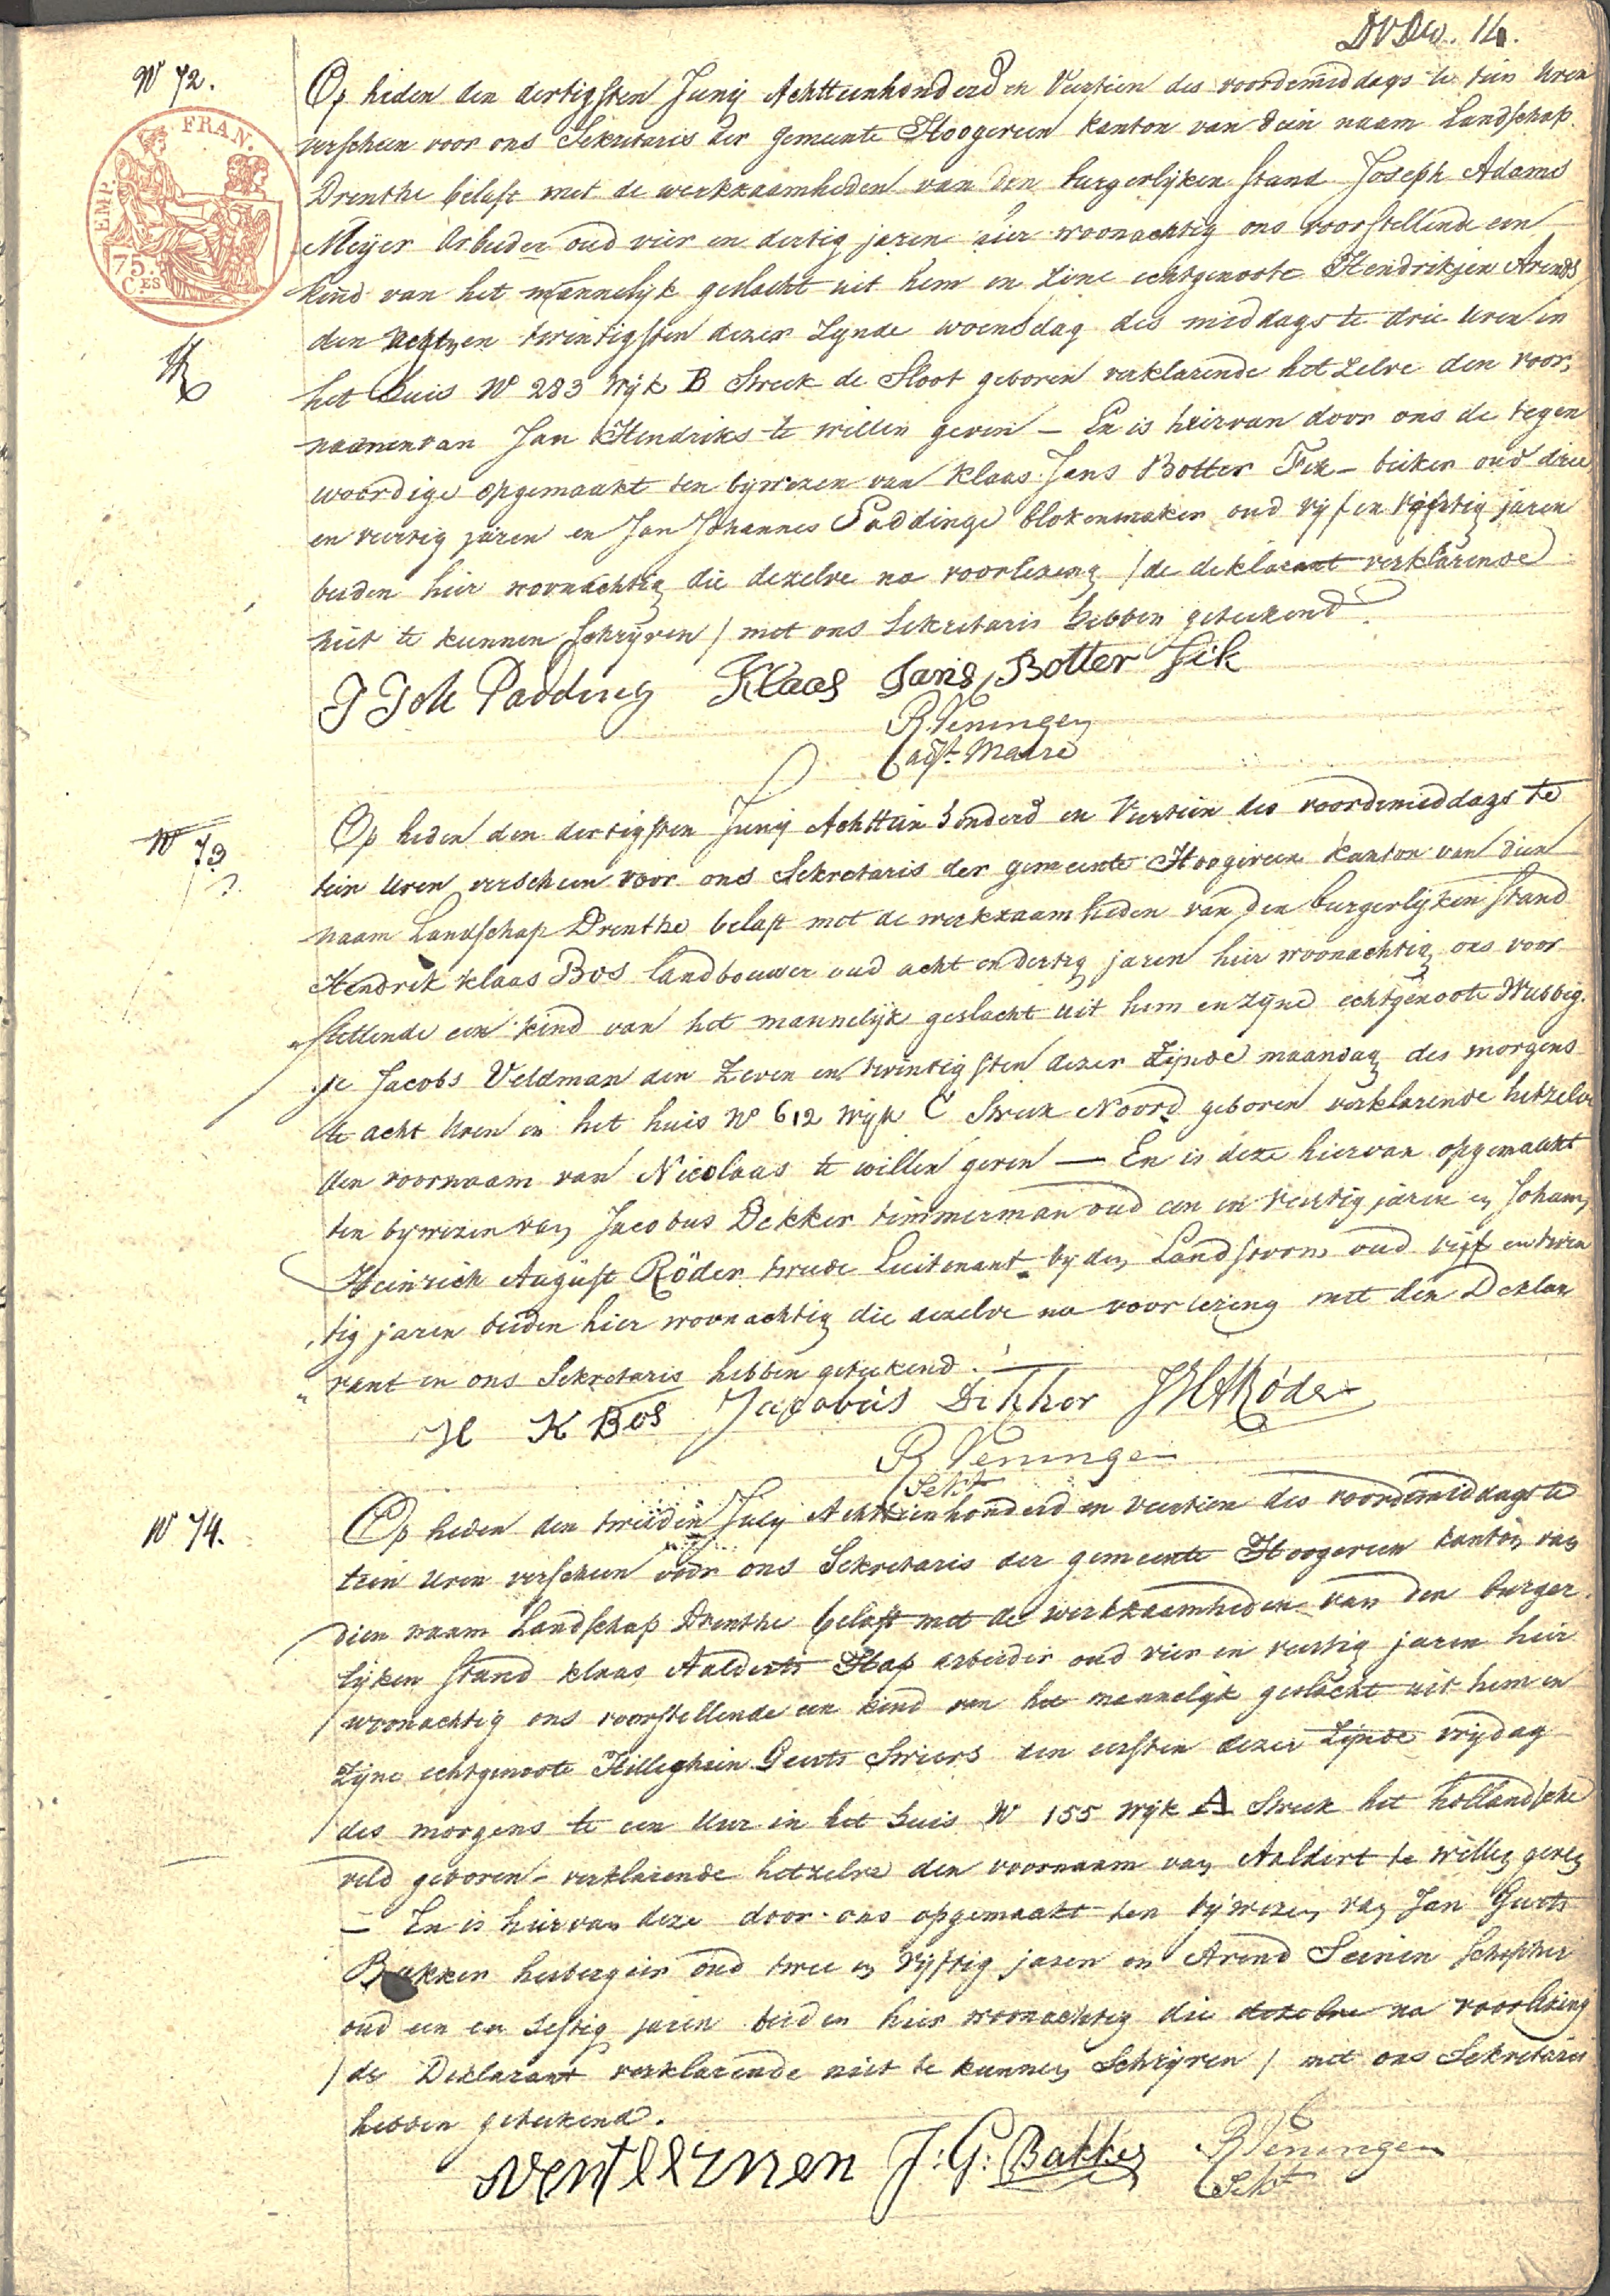 14.
No 72.
Op heden den dertigsten Junij Achttienhonderd en Veertien des voordemiddags te tien Uren
verscheen voor ons Sekretaris der gemeente Hoogeveen Kanton van dien naam Landschap
Drenthe belast met de werkzaamheden van den burgerlijken stand Joseph Adams
Meijer Arbeider oud vier en dertig jaren hier woonachtig ons voorstellende een
kind van het mannelijk geslacht uit hem en zijne echtgenoote Hendrikjen Arends
den Acht en twintigsten dezer Zynde woensdag des middags te drie Uren in
het huis No 283 Wijk B Streek de Sloot geboren verklarende het zelve den voor,
naamen van Jan Hendriks te willen geven — En is hiervan door ons de tegen
woordige opgemaakt ten bywezen van Klaas Jans Botter Fik - bakker oud drie
en veertig jaren en Jan Johannes Paddinge blokenmaker oud vyf en vyftig jaren
beiden hier woonachtig die dezelve na voorlezing / de deklarant verklarende
niet te kunnen schryven / met ons Sekretaris hebben geteekend.
J Joh Padding Klaas Jans Botter fik
R. Veningen
adjt Maire
EMP. FRAN.
75. CES
No 73
Op heden den dertigsten Junij Achttien honderd en Veertien des voordemiddags te
tien Uren verscheen voor ons Sekretaris der gemeente Hoogeveen Kanton van dien
naam Landschap Drenthe belast met de werkzaamheden van den burgerlijken stand
Hendrik Klaas Bos landbouwer oud acht en dertig jaren hier woonachtig ons voor
stellende een kind van het mannelijk geslacht uit hem en zijne echtgenoote Wubbig-
je Jacobs Veldman den Zeven en twintigsten dezer Zijnde maandag des morgens
te acht Uren in het huis No 612 Wijk C Streek Noord geboren verklarende hetzelve
den voornaam van Nicolaas te willen geven — En is deze hiervan opgemaakt
ten bywezen van Jacobus Dekker timmerman oud een en veertig jaren en Johann
Heinrich August Röder tweede Luitenant by den Landstorm oud vijf en twin
tig jaren beiden hier woonachtig die dezelve na voorlezing met den Deklar
rant en ons Sekretaris hebben geteekend.
H K Bos Jacobus Dekker JHARöder
R Veningen
Sekt
No 74.
Op heden den tweeden July Achttienhonderd en veertien des voordemiddags te
tien Uren verscheen voor ons Sekretaris der gemeente Hoogeveen kanton van
dien naam Landschap Drenthe belast met de werkzaamheden van den burger
lijken stand Klaas Aalderts Stap arbeider oud vier en veertig jaren hier
woonachtig ons voorstellende een kind van het mannelijk geslacht uit hem en
zijne echtgenoote Hilleghien Geerts Sniers den eersten dezer Zijnde vrijdag
des morgens te een Uur in het huis No 155 Wijk A Streek het hollandsche
veld geboren - verklarende hetzelve den voornaam van Aaldert te willen geven
— En is hiervan deze door ons opgemaakt ten bijwezen van Jan Geerts
Bakker herbergier oud twee en vijftig jaren en Arend Seinen Schipper
oud een en sestig jaren beiden hier woonachtig die dezelve na voorlezing
/ de Deklarant verklarende niet te kunnen Schrijven / met ons Sekretaris
hebben geteekend.
J: G: Bakker R Veningen
Sekt